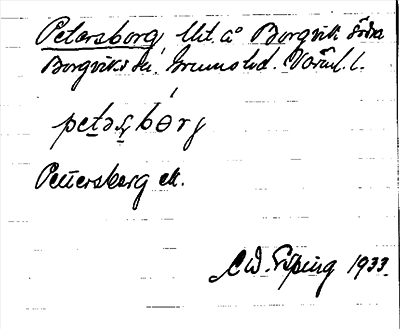 Petersborg, Ut. å Borgvik södra
Borgviks sn. Grums hd. Värml. l.
petəʂbɵrg
Petersberg ek.
C.W. Epping 1933.